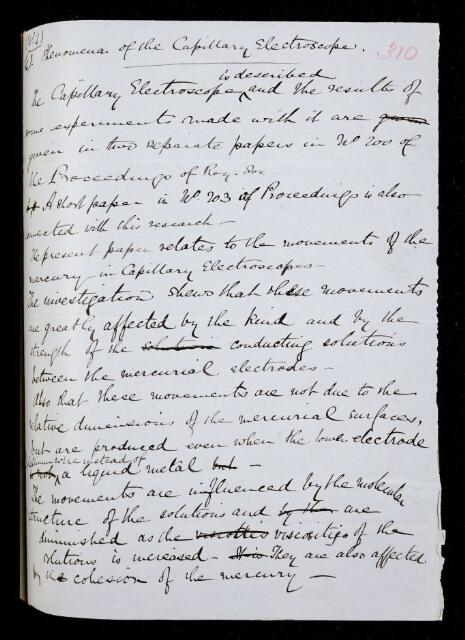 310
Phenomena of the Capillary Electroscope.
is described
The Capillary Electroscope, and the results of
some experiments made with it are given
given in two separate papers in No 200 of
the Proceedings of Roy. Soc
A short paper in No 203 of Proceedings is also
connected with this research -
The present paper relates to the movements of the
mercury in Capillary Electroscopes -
The investigation shews that these movements
are greatly affected by the kind and by the
strength of the solutions conducting solutions
between the mercurial electrodes -
Also that these movements are not due to the
relative dimensions of the mercurial surfaces,
but are produced even when the lower electrode
wire instead of
is not a liquid metal but -
The movements are influenced by the molecular
structure of the solutions and by the are
diminished as the viscosities of the
solutions is increased - It is They are also affected
by the cohesion of the mercury -